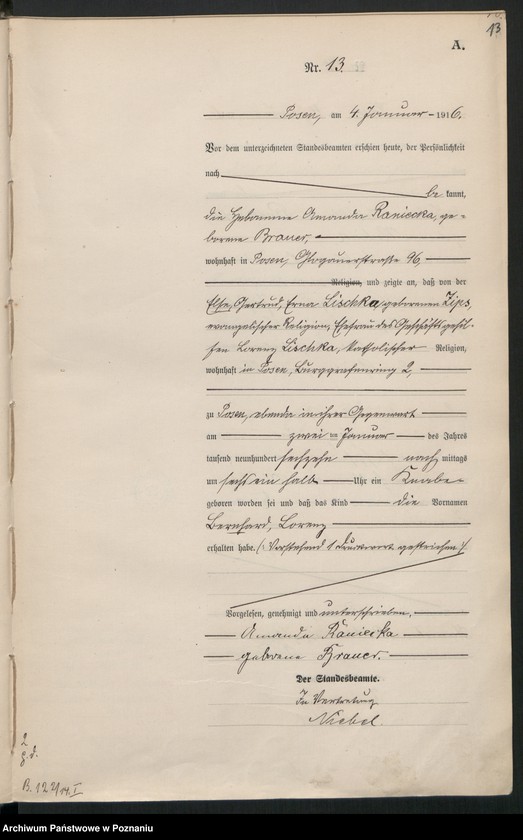 13
A.
Nr. 13
Posen, am 4. Januar 1916.
Vor dem unterzeichneten Standesbeamten erschien heute, der Persönlichkeit
nach
be kannt,
die Hebamme Amanda Raniecka, ge-
borene Brauer,
wohnhaft in Posen, Glogauerstraße 96,
Religion, und zeigte an, daß von der
Else, Gertrud, Erna Lischka, geborenen Zips,
evangelischer Religion, Ehefrau des Geschäftsgehil-
fen Lorenz Lischka, katholischer Religion,
wohnhaft in Posen, Burggrafenring 2,
zu Posen, ebenda in ihrer Gegenwart
am zwei - Januar des Jahres
tausend neunhundert sechzehn nach mittags
um sechs ein halb Uhr ein Knabe
geboren worden sei und daß das Kind die Vornamen
Bernhard, Lorenz
erhalten habe. (Vorstehend 1 Druckwort gestrichen).
Vorgelesen, genehmigt und unterschrieben.
Amanda Raniecka
geborene Brauer.
Der Standesbeamte.
In Vertretung
Niebel.
2
B. 122/14. I
Archiwum Państwowe w Poznaniu